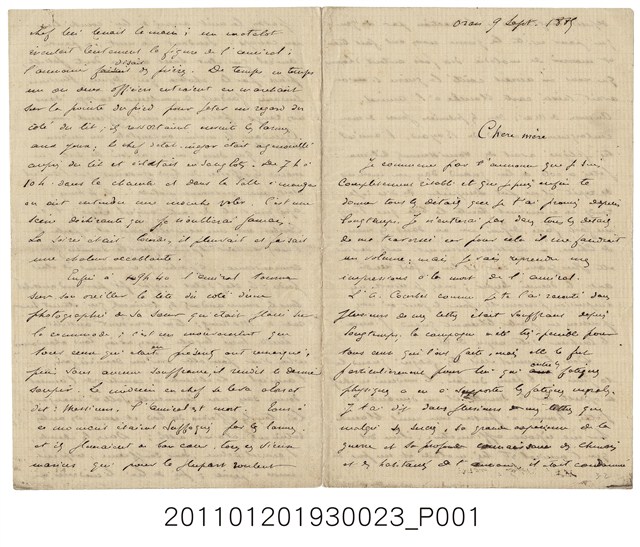 Oran 9 Sept. 1885
Chère mère
Je commence par t'annoncer que je suis
complètement rétabli et que je puis enfin te
donner tous les détails que je t'ai promis depuis
longtemps. Je n'entrerai pas dans tous les détails
de ma traversée car pour cela il me faudrait
un volume; mais je vais reprendre mes
impressions à la mort de l'amiral.
L'A. Courbet comme je te l'ai raconté dans
plusieurs de mes lettres était souffrant depuis
longtemps. la campagne a été très pénible pour
tous ceux qui l'ont faite, mais elle le fut
particulièrement pour lui qui outre les fatigues
physiques a eu à supporter les fatigues morales.
Je t'ai dit dans plusieurs de mes lettres que
malgré ses succès, sa grande expérience de la
guerre et sa profonde connaissance des chinois
et des habitants de l' il était condamné
chef lui tenait la main; un matelot
lentement la figure de l'amiral;
l'aumônier disait des prières. De temps en temps
un ou deux officiers entraient en marchant
sur la pointe du pied pour jeter un regard du
côté du lit; ils ressortaient ensuite les larmes
aux yeux; le chef d'état-major était agenouillé
auprès du lit et éclatait en sanglots; de 7h à
10h. dans la chambre et dans la salle à manger
on eût entendu une mouche voler. C'est une
scène déchirante que je n'oublierai jamais.
La soirée était lourde, il pleuvait et faisait
une chaleur accablante.
Enfin à 9h40 l'amiral tourna
sur son oreiller la tête du côté d'une
photographie de sa sœur qui était placée sur
la commode; c'est un mouvement que
tous ceux qui étaient présents ont remarqué;
puis sans aucune souffrance, il rendit le dernier
soupir. Le médecin en chef se leva alors et
dit: Messieurs, l'amiral est mort. Tous à
ce moment étaient suffoqués par les larmes
et ils pleuraient de bon cœur, tous ces vieux
marins qui pour la plupart